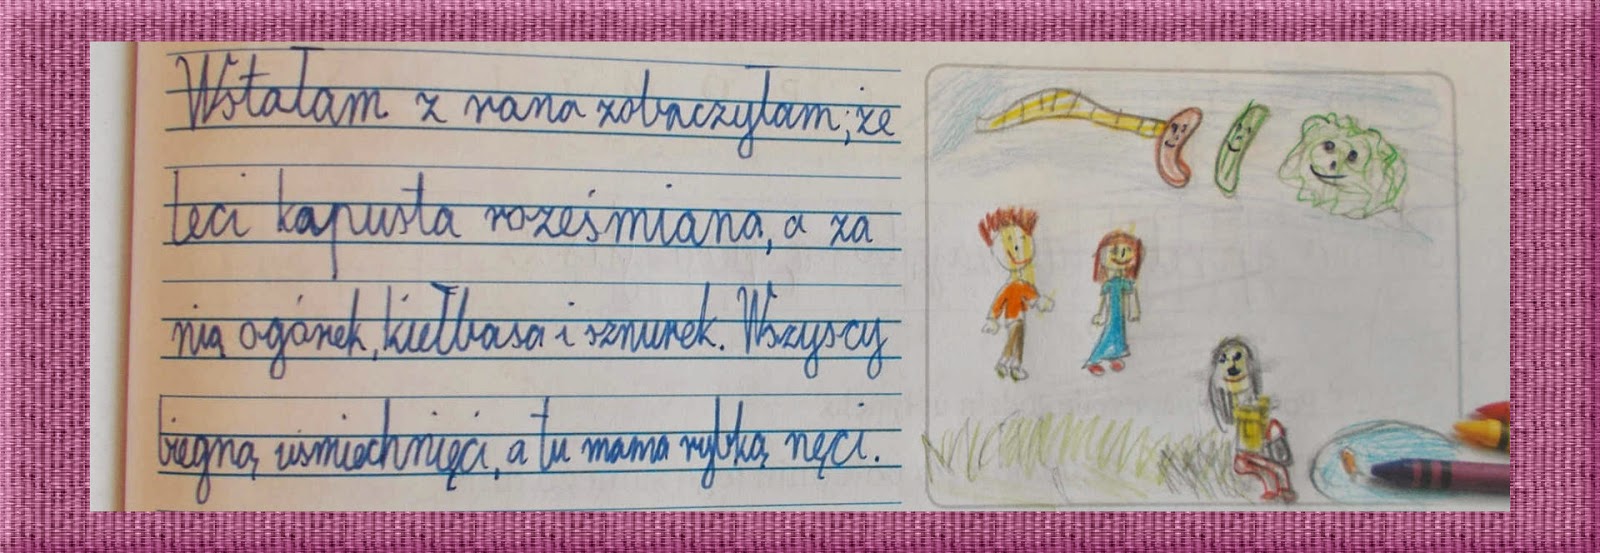 Wstałam z rana zobaczyłam; że
leci kapusta roześmiana, a za
nią ogórek, kiełbasa i sznurek. Wszyscy
biegną uśmiechnięci, a tu mama rybką nęci.